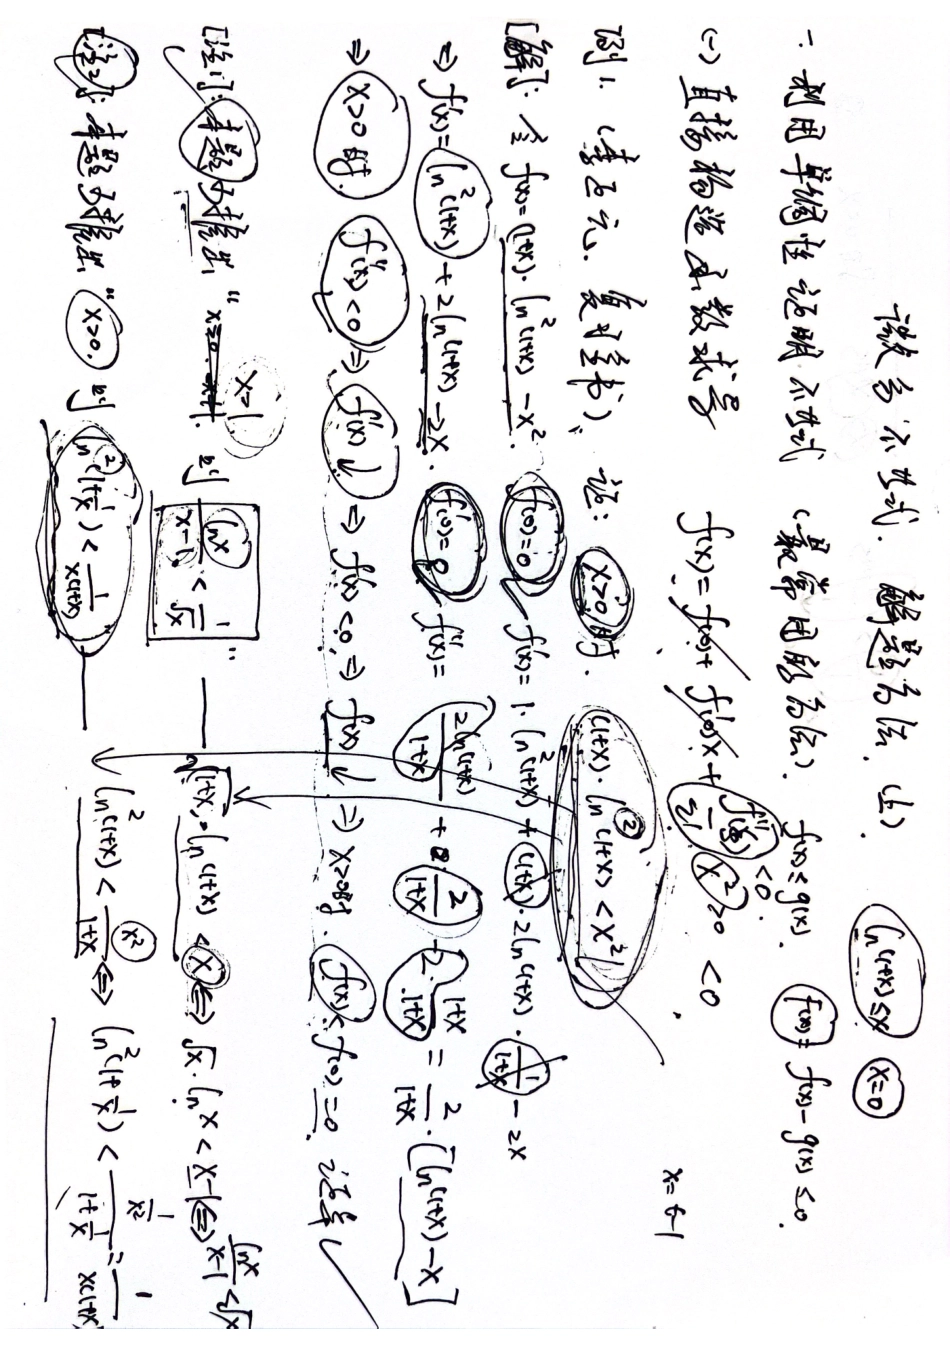 微分不等式. 解题方法. (上).
ln(1+x)≤x x=0
一. 利用单调性证明不等式 (最常用的方法). f(x)≤g(x). F(x)=f(x)-g(x)≤0.
(一) 直接构造函数求导 f(x)=f(0)+f'(0)x+f''(ξ)/2! x²≥0 <0.
<0.
x=t-1
例1. (李正元. 复习全书). 证: x>0时. (1+x)·ln²(1+x)<x²
[解]: 令 f(x)=(1+x)·ln²(1+x)-x². f(0)=0 f'(x)=1·ln²(1+x)+(1+x)·2ln(1+x)·1/(1+x)-2x
⇒ f'(x)=ln²(1+x)+2ln(1+x)-2x. f'(0)=0 f''(x)=2ln(1+x)/(1+x)+2/(1+x)-2·(1+x)/(1+x)=2/(1+x)·[ln(1+x)-x]
⇒ x>0时. f''(x)<0 ⇒ f'(x)↓ ⇒ f'(x)<0 ⇒ f(x)↓ ⇒ x>0时. f(x)<f(0)=0. 证毕
[注1]: 本题可推出: "x>1 时 lnx/(x-1)<1/√x" — √(1+x)·ln(1+x)<x ⇔ √x·lnx<x-1 ⇔ lnx/(x-1)<1/√x
[注2]: 本题可推出. "x>0. 时 ln²(1+1/x)<1/(x(1+x)) — ln²(1+x)<x²/(1+x) ⇔ ln²(1+1/x)<(1/x²)/(1+1/x)=1/(x(1+x))